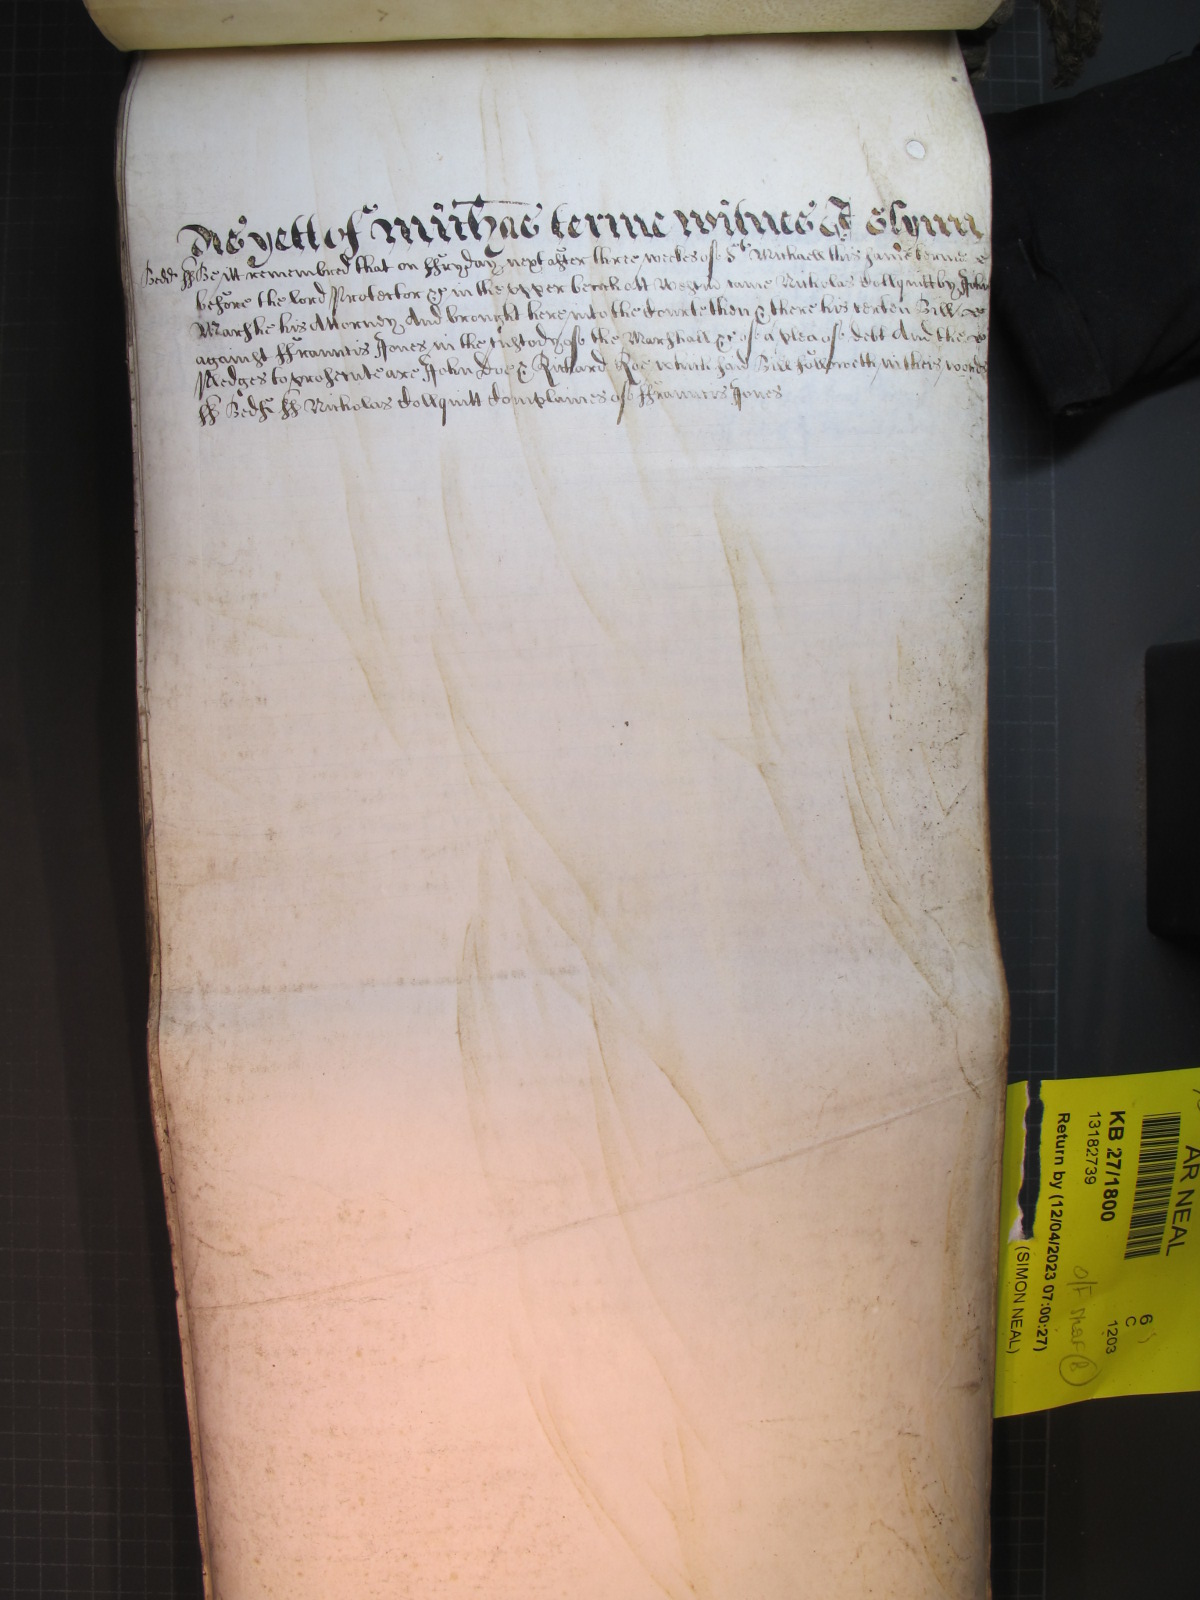 As yett of Mich̃as terme witnes J Glynn
Bedd: ss Be itt remembred that on ffryday next after three weekes of St Michaell this same terme
before the lord Protector &c in the vpper bench att Westm̃ came Nicholas Collquitt by John
Marshe his Attorney And brought here into the Courte then & there his certen Bill
against ffrauncis Jones in the custody of the Marshall &c of a plea of debt And the
Pledges to prosecute are John Doe & Richard Roe which said Bill followeth in theis words
ss Bedf ss Nicholas Collquitt Complaines of ffrauncis Jones
AR NEAL
KB 27/1800
13182739
Return by (12/04/2023 07:00:27)
(SIMON NEAL)
6
C
1203